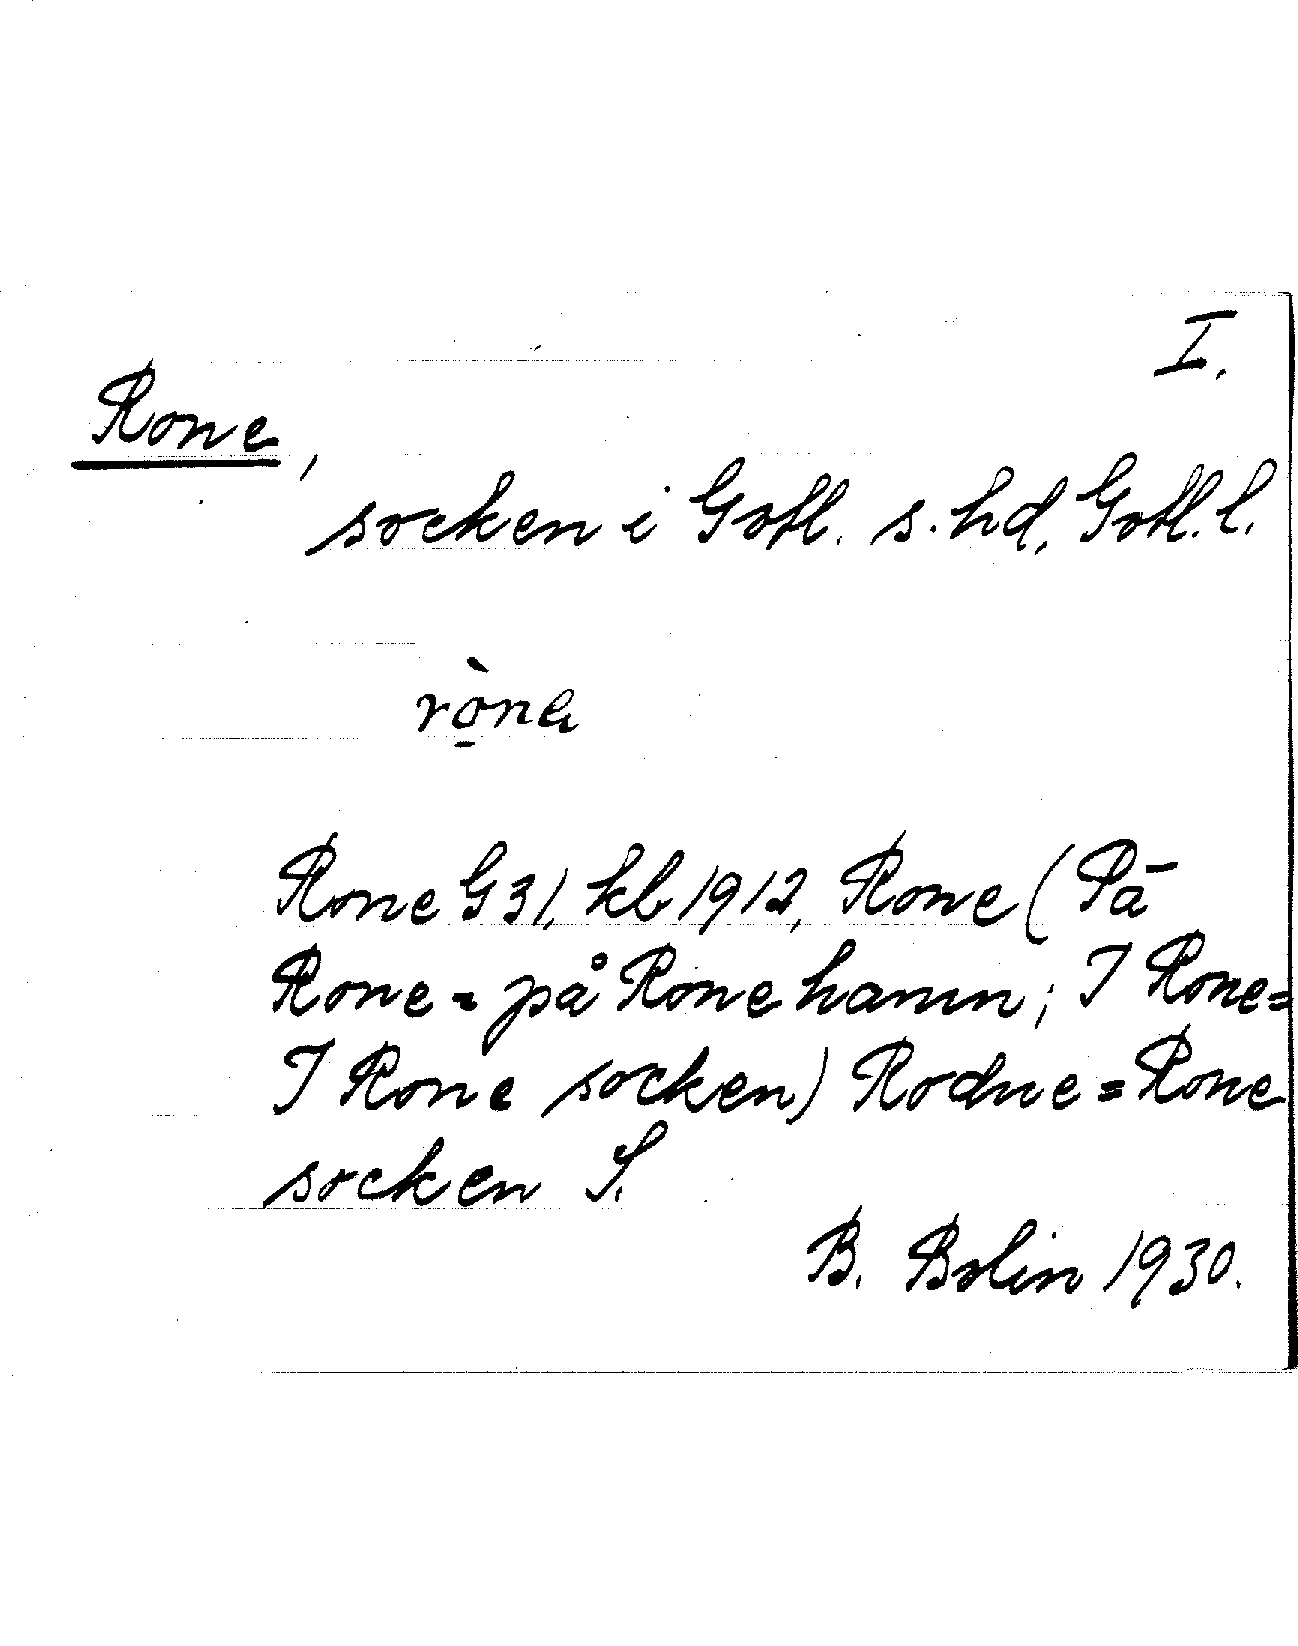 I.
Rone,
socken i Gotl. s. hd, Gotl. l.
rò̱na
Rone G 31, kb 1912, Rone (På
Rone = på Rone hamn; I Rone =
I Rone socken) Rodne = Rone
socken S.
B. Bolin 1930.